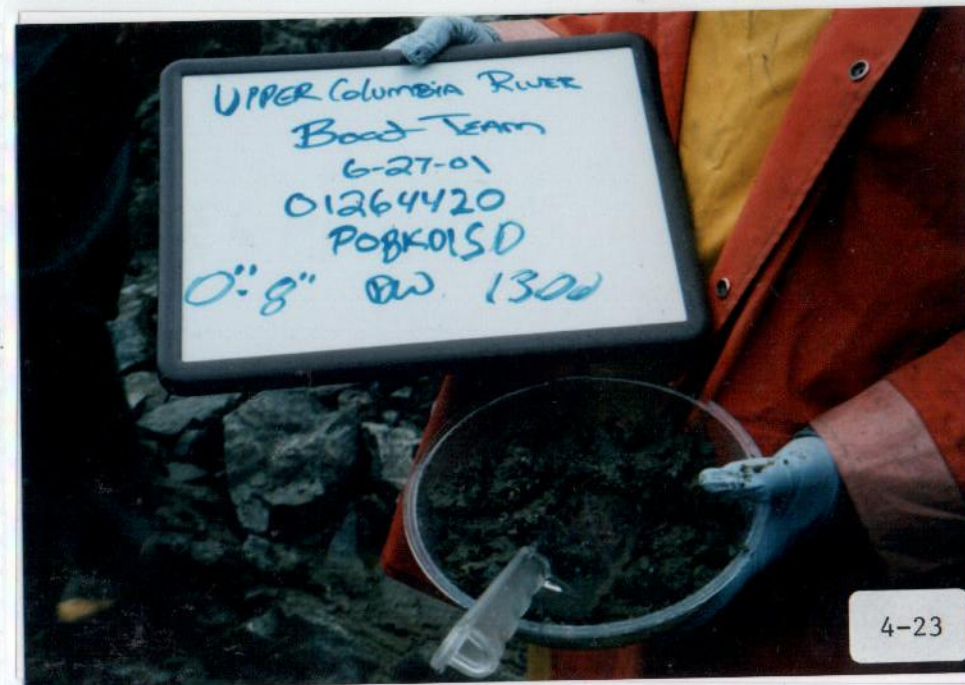 UPPER Columbia River
Boat Team
6-27-01
01264420
P08K01SD
0"-8" DW 1300
4-23